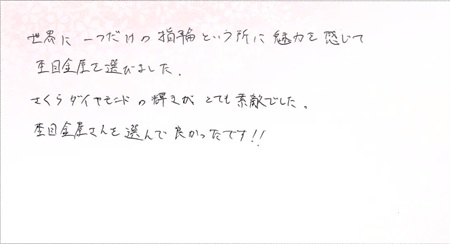 世界に一つだけの指輪という所に魅力を感じて
杢目金屋を選びました。
さくらダイヤモンドの輝きがとても素敵でした。
杢目金屋さんを選んで良かったです!!